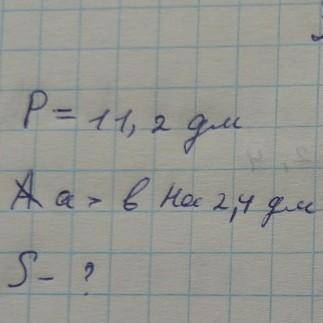 P = 11,2 дм
a > в на 2,4 дм
S - ?